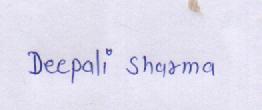 Deepali Sharma